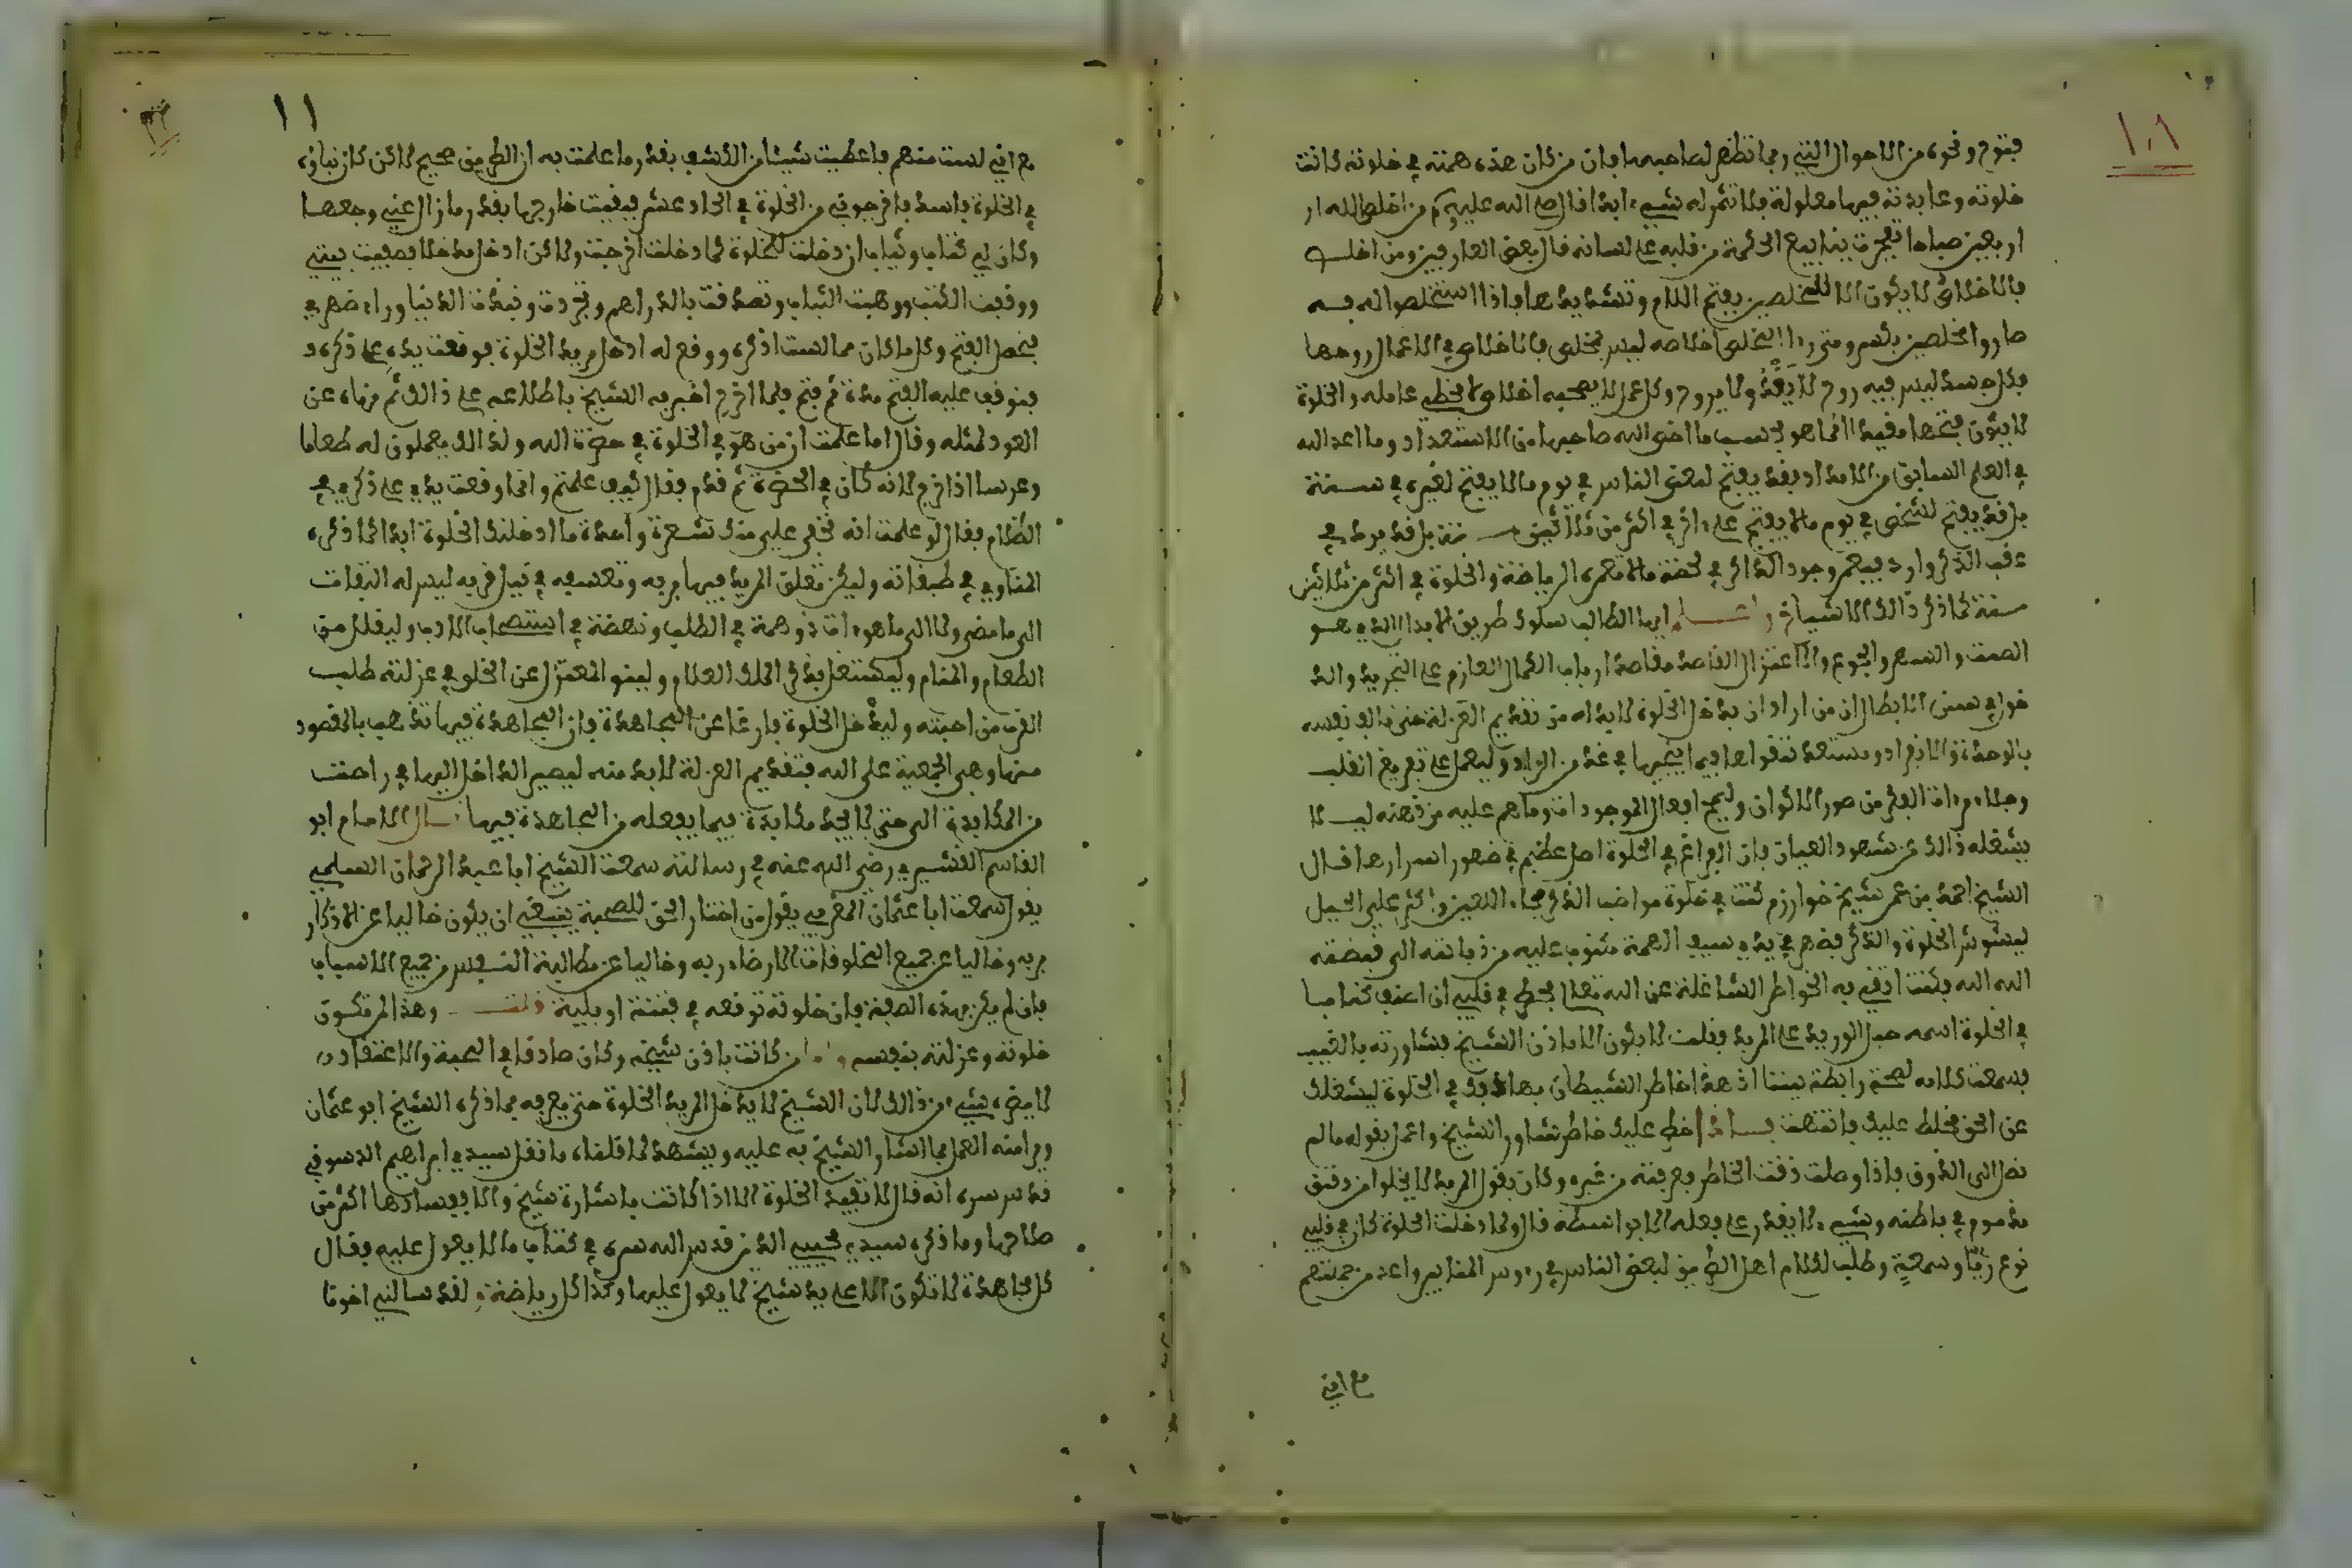 ١٠٨
فتوح ونحوه من الاحوال التي ربما تظهر لصاحبها فان من كان هذه همته في خلوته كانت
خلوته وعابدته فيها معلولة فلا تثمر له شيء ابدا قال صلى الله عليه وسلم من اخلص لله ار
اربعين صباحا تفجرت ينابيع الحكمة من قلبه على لسانه قال بعض العارفين ومن اخلص
بالاخلاص لا يكون الا للمخلصين بفتح اللام وتشديدها فاذا استخلصوا له به
صاروا مخلصين بكسر ومتى اخلاصه ليس بمخلص فالاخلاص في الاعمال روحها
فكل جسد ليس فيه روح لا يغد ولا يروح وكل عمل لا يصحبه اخلاص لا يخطر عامله والخلوة
لا يكون فتحها مقيدا انما هو بحسب ما اخص الله صاحبها من الاستعداد وما اعد الله
في العلم السابق من الامداد فقد يفتح لبعض الناس في يوم ما لا يفتح لغيره في سنة
بل قد يفتح لشخص في يوم ما لا يفتح على اخر في اكثر من ثلاثين سنة بل قد يرد في
عقب الذكر وارد فيعمر وجود الذاكر في لحظة ما لا تعمره الرياضة والخلوة في اكثر من ثلاثين
سنة كما ذكر ذالك الاشياخ واعلم ايها الطالب سلوك طريق الابدال الذي هو
الصمت والسهر والجوع والاعتزال القاصد مقاصد ارباب الكمال العازم على التجريد والد
خول في همس الابطال ان من اراد ان يدخل الخلوة لا بد له من تقديم العزلة حتى تالف نفسه
بالوحدة والانفراد ويستعد تقواها فيما ينجيها في غد من الزاد وليعمل على تفريغ القلب
وجلاء مرءاة الفكر من صور الاكوان وليمح افعال الموجودات وما هم عليه من ذهنه ليلا
يشغله ذالك عن شهود العيان فان الفراغ في الخلوة اصل عظيم في ظهور اسرارها قال
الشيخ احمد بن عمر شيخ خوارزم كنت في خلوة مواضب الذكر فجاء اللعين واكثر علي الحيل
ليشوش الخلوة والذكر فظهر في يدي سيف الهمة مكتوب عليه من ذبابته الى قبضته
الله الله فكنت انفي به الخواطر الشاغلة عن الله تعالى فخطر في قلبي ان اصنف كتابا
في الخلوة اسمه حبل الوريد على المريد فقلت لا يكون الا باذن الشيخ فشاورته بالغيب
فسمعت كلامه لصحة رابطة بيننا اذ هذا خاطر الشيطان يهاديك في الخلوة ليشغلك
عن الحق فخلط عليك فانتهت فاذا خطر عليك خاطر تشاور الشيخ واعمل بقوله ما لم
تصل الى الذوق فاذا وصلت ذقت الخاطر بعرفته من غيره وكان يقول المريد لا يخلوا من دقيق
مذموم في باطنه وشيء لا يقدر على فعله الا بواسطة قال ولما دخلت الخلوة كان في قلبي
نوع رياء وسمعة وطلب لكلام اهل الطريق لبعض الناس في رءوس المنابر واعد من جملتهم
مع اني
١١
مع اني لست منهم فاعطيت شيئا من الكشف بقدر ما علمت به ان الطريق صحيح لاكن كان بناؤه
في الخلوة فاسد فاخرجوني من الخلوة في الحاد عشر فبقيت خارجها بقدر ما زال عني وجعها
وكان لي كتاب وثياب ان دخلت الخلوة كما دخلت اخرجت ولاكن ادخل مدخلا فصفيت بيتي
ووقفت الكتب ووهبت الثياب وتصدقت بالدراهم وتجردت ونبذت الدنيا وراء ظهري
فحصل الفتح وكل ما كان مما لست اذكره ووقع له ادخل مريد الخلوة فوقعت يده على ذكره
فتوقف عليه الفتح مدة ثم فتح فلما اخرج اخبر به الشيخ باطلاعه على ذالك ثم نهاه عن
العود لمثله وقال اما علمت ان من هو في الخلوة في حضرة الله ولذالك يعملون له طعاما
وعرسا اذا خرج لانه كان في الحضرة ثم قدم فقال كيف علمتم وانما وقعت يدي على ذكري في
الظلام فقال لو علمت انه يخفى علي منك شعرة واحدة ما ادخلتك الخلوة ابدا كما ذكره
المناوي في طبقاته وليكن تعلق المريد فيها بربه وتعسفه في نيل قربه ليس له التفات
الى ما مضى ولا الى ما هو ءات ذو همة في الطلب ونهضة في استصحاب الادب وليقلل من
الطعام والمنام وليشتغل بذكر الملك العلام وليفو المعتزل عن الخلو في عزلته طلب
القرب من احبته وليدخل الخلوة فارغا عن المجاهدة فان المجاهدة فيها تذهب بالمقصود
منها وهي الجمعية على الله فتقديم العزلة لا بد منه ليصير الداخل اليها في راحت
من المكابدة الى حتى لا يجد مكابدة فيما يفعله من المجاهدة فيها قال الامام ابو
القاسم القشيري رضي الله عنه في رسالته سمعت الشيخ ابا عبد الرحمان السلمي
يقول سمعت ابا عثمان المغربي يقول من اختار الحق للصحبة ينبغي ان يكون خاليا عن الاذكار
بربه وخاليا عن جميع المخلوقات الا رضاء ربه وخاليا عن مطالبة النفس من جميع الاسباب
فان لم يكن بهذه الصفة فان خلوته توقعه في فتنة او بلية قلت وهذا لمن تكون
خلوته وعزلته بنفسه واما من كانت باذن شيخه وكان صادقا في الصحبة والاعتقاد
لا يضره شيء من ذالك لان الشيخ لا يدخل المريد الخلوة حتى يعرفه بما ذكره الشيخ ابو عثمان
ويرا منه العمل بما اشار الشيخ به عليه ويشهد لما قلناه ما نقل سيدي ابراهيم الدسوقي
قدس سره انه قال لا تفيد الخلوة الا اذا كانت باشارة شيخ والا ففسادها اكثر من
صلاحها وما ذكره سيدي محيي الدين قدس الله سره في كتاب ما لا يعول عليه فقال
كل مجاهدة لا تكون الا على يد شيخ لا يعول عليها وكذا كل رياضة ولقد سالني اخونا